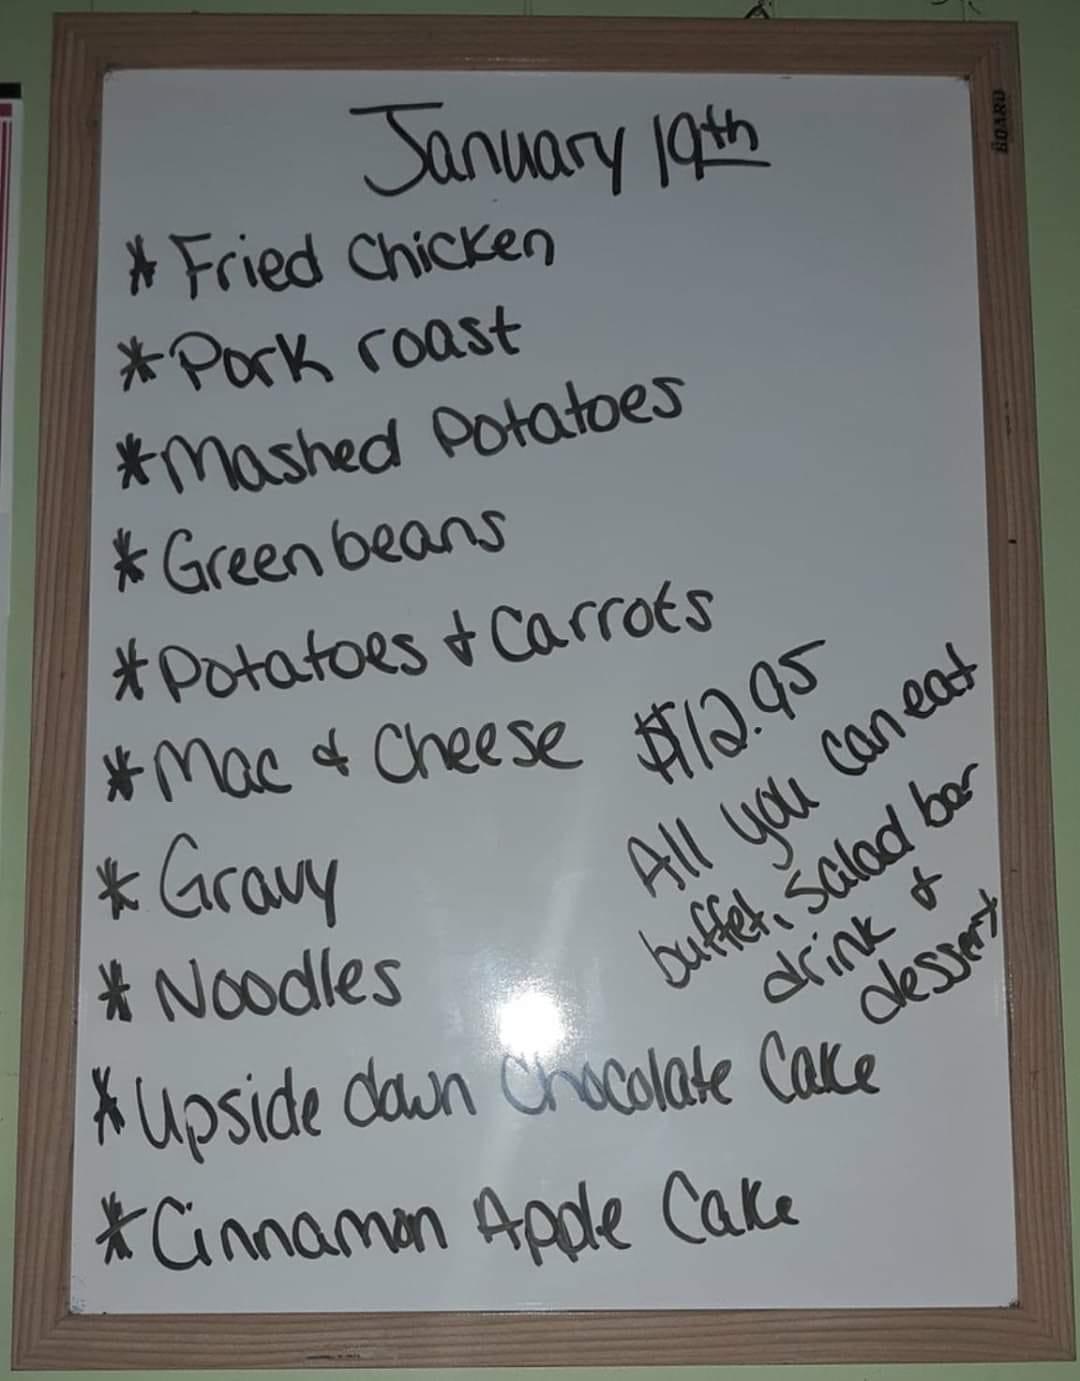 January 19th
* Fried Chicken
* Pork roast
* Mashed Potatoes
* Green beans
* Potatoes & Carrots
* Mac & Cheese
* Gravy
* Noodles
* Upside down Chocolate Cake
* Cinnamon Apple Cake
$12.95
All you can eat
buffet, Salad bar
drink &
dessert
BOARD